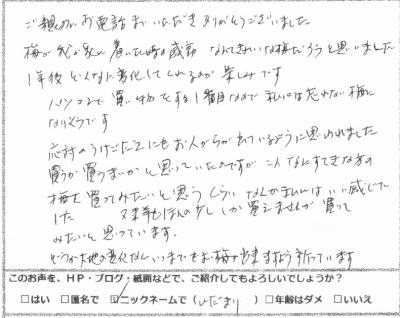 ご親切なお電話までいただきありがとうございました
梅が我が家に着いた時の感動 なんてきれいな梅だろうと思いました
1年後どんなに変化してくれるのか楽しみです
パソコンで買い物をする1番目なので私には忘れない梅に
なりそうです
応対のうけこたえにもお人がらが出ているように思われました
買うか買うまいかと思っていたのですがこんなにすてきな方の
梅を買ってみたいと思うくらいなんかまわりはいい感じで
した 又 ほんの少ししか買えませんが買って
みたいと思っています。
どうか大地の変化なくいつまでもお梅が出来ますよう祈っています
このお声を、HP・ブログ・紙面などで、ご紹介してもよろしいでしょうか？
□はい □匿名で ☑ニックネームで（ひだまり ）□年齢はダメ □いいえ